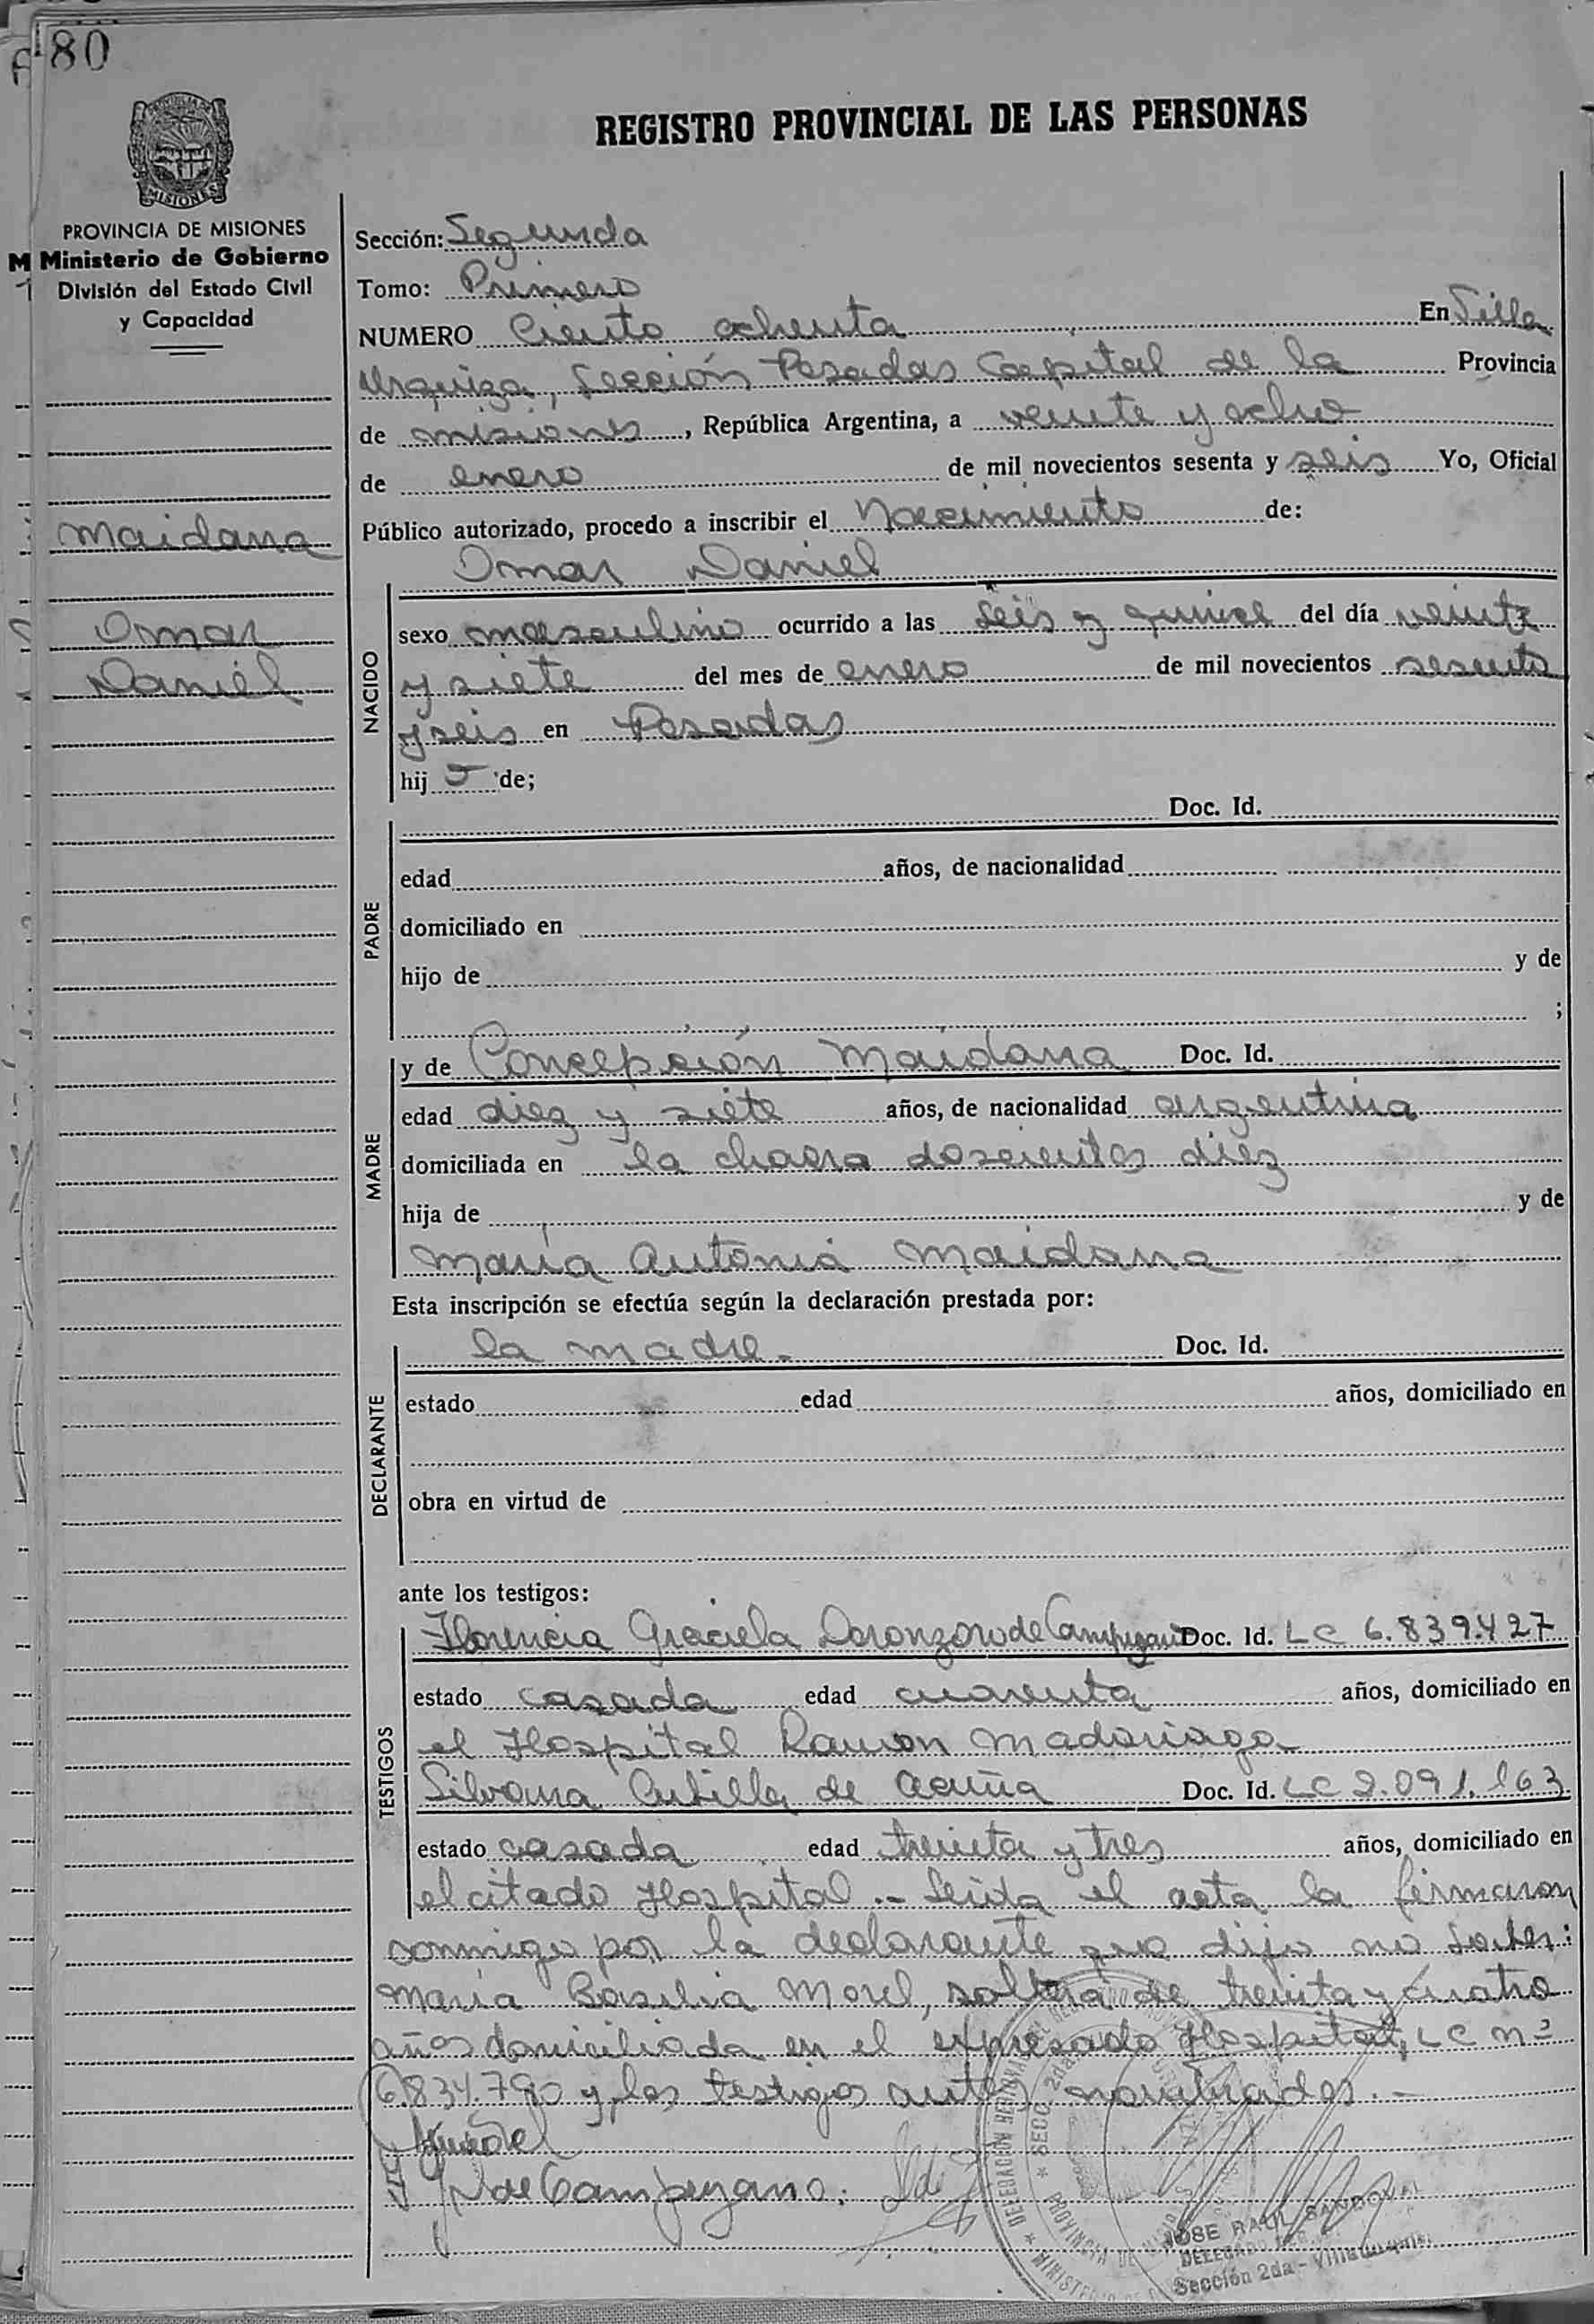 180
REGISTRO PROVINCIAL DE LAS PERSONAS
MISIONES
PROVINCIA DE MISIONES
Ministerio de Gobierno
División del Estado Civil
y Capacidad
Maidana
Omar
Daniel
Sección: Segunda
Tomo: Primero
NUMERO Ciento ochenta En Villa
Urquiza, Sección Posadas Capital de la Provincia
de misiones, República Argentina, a veinte y ocho
de enero de mil novecientos sesenta y seis Yo, Oficial
Público autorizado, procedo a inscribir el Nacimiento de:
Omar Daniel
NACIDO
sexo masculino ocurrido a las seis y quince del día veinte
y siete del mes de enero de mil novecientos sesenta
y seis en Posadas
hij o de;
Doc. Id.
PADRE
edad años, de nacionalidad
domiciliado en
hijo de y de
;
MADRE
y de Concepción Maidana Doc. Id.
edad diez y siete años, de nacionalidad argentina
domiciliada en la chacra doscientos diez
hija de y de
María Antonia Maidana
Esta inscripción se efectúa según la declaración prestada por:
DECLARANTE
la madre.- Doc. Id.
estado edad años, domiciliado en
obra en virtud de
ante los testigos:
TESTIGOS
Florencia Graciela Doronzoro de Campezano Doc. Id. LC 6.839.427
estado casada edad cuarenta años, domiciliado en
el Hospital Ramon Madariaga
Silvana de Acuña Doc. Id. LC 2.091.163
estado casada edad treinta y tres años, domiciliado en
el citado Hospital.- Leida el acta la firmaron
conmigo por la declarante que dijo no saber:
María Basilia Morel, soltera de treinta y cuatro
años domiciliada en el expresado Hospital, LC nº
6.834.790 y los testigos antes nombrados.-
de Campezano.
SECC. 2da
PROVINCIA DE MISIONES
JOSE RAUL SANDOVAL
DELEGADO
Sección 2da - Villa Urquiza